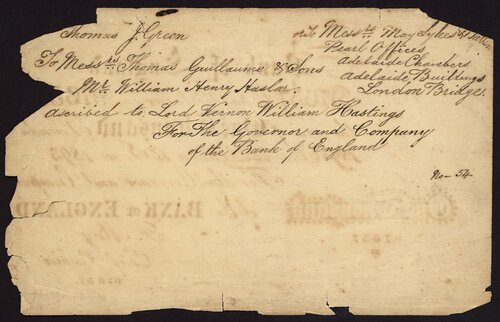 Thomas J Green
or To Messrs May Sykes
Pearl Offices
Adelaide Chambers
Adelaide Buitings
London Bridge.
To Messrs Thomas Guillaume & Sons
Mr. William Henry Haslar.
ascribed to Lord Vernon William Hastings
For The Governor and Company
of the Bank of England
No - 54
BANK OF ENGLAND